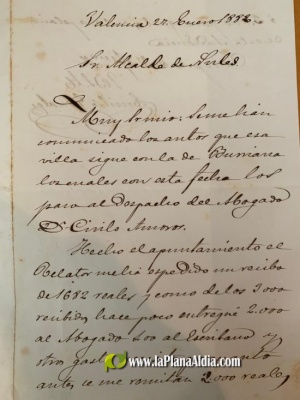 Valencia 27 Enero 1856
Sr. Alcalde de
Muy Sr mio: Se me han
comunicado los autos que esa
villa sigue con la de Burriana
los cuales con esta fecha los
paso al Despacho del Abogado
Dn Cirilo Amoros.
Hecho el apuntamiento el
Relator me ha espedido un recibo
de 1682 reales y como de los 3000
recibidos hace poco entregué 2.000
al Abogado 400 al Escribano y
otro
antes se me remitan 2.000 reales,
www.laPlanaAldia.com